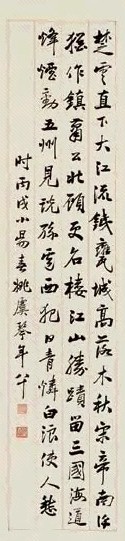 楚雲直下大江流鐵甕城高落木秋宋帝南
猶作鎮蕭公北顧更名樓江山勝蹟留三國海道
烽煙動五州見說孫盧西犯日青憐白浪使人愁
時丙戌小昜春姚虞琴年八十